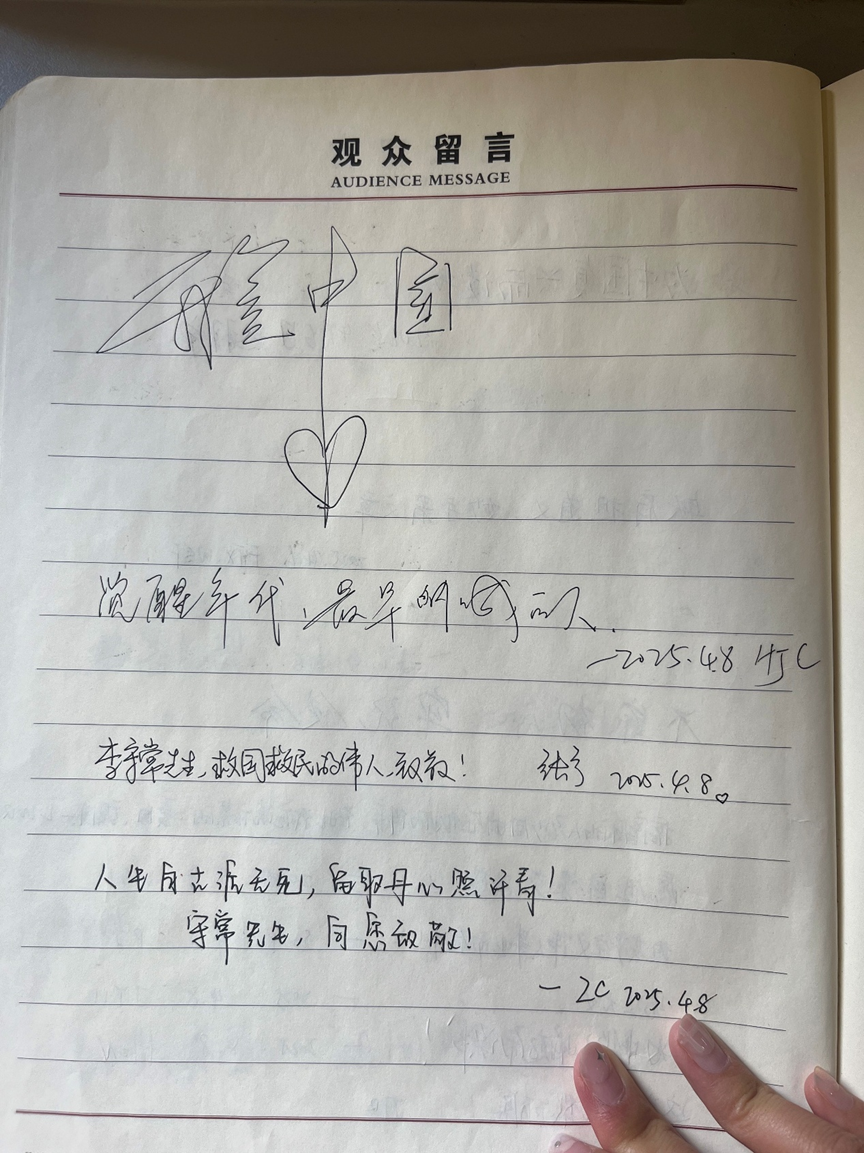 观众留言
AUDIENCE MESSAGE
中国
觉醒年代，最早的
—2025.4.8 HJC
李守常先生，救国救民的伟人，致敬！ 2025.4.8。
人生自古谁无死，留取丹心照汗青！
守常先生，向您致敬！
— ZC 2025.4.8